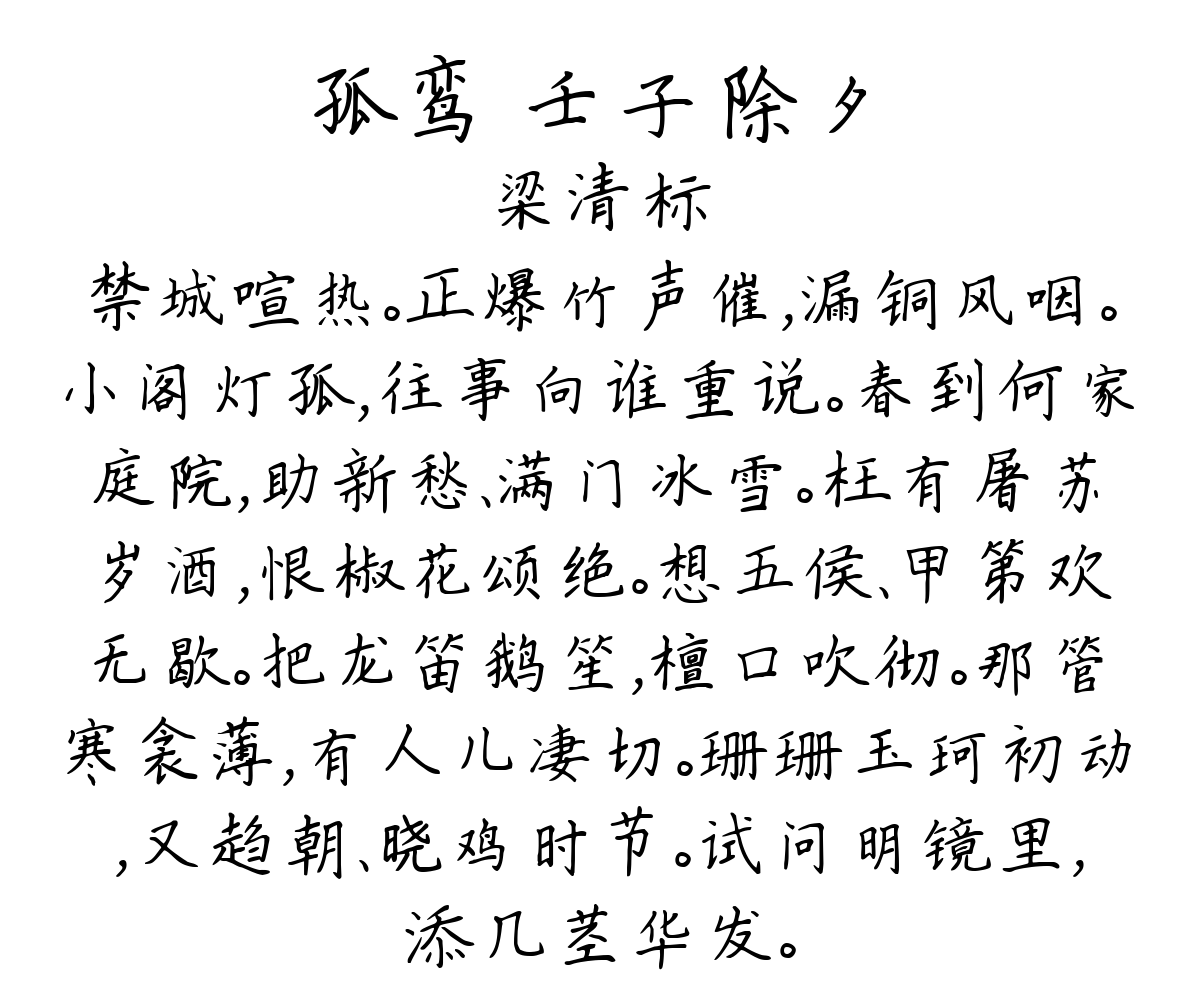 孤鸾 壬子除夕
梁清标
禁城喧热。正爆竹声催,漏铜风咽。
小阁灯孤,往事向谁重说。春到何家
庭院,助新愁、满门冰雪。枉有屠苏
岁酒,恨椒花颂绝。想五侯、甲第欢
无歇。把龙笛鹅笙,檀口吹彻。那管
寒衾薄,有人儿凄切。珊珊玉珂初动
,又趋朝、晓鸡时节。试问明镜里,
添几茎华发。